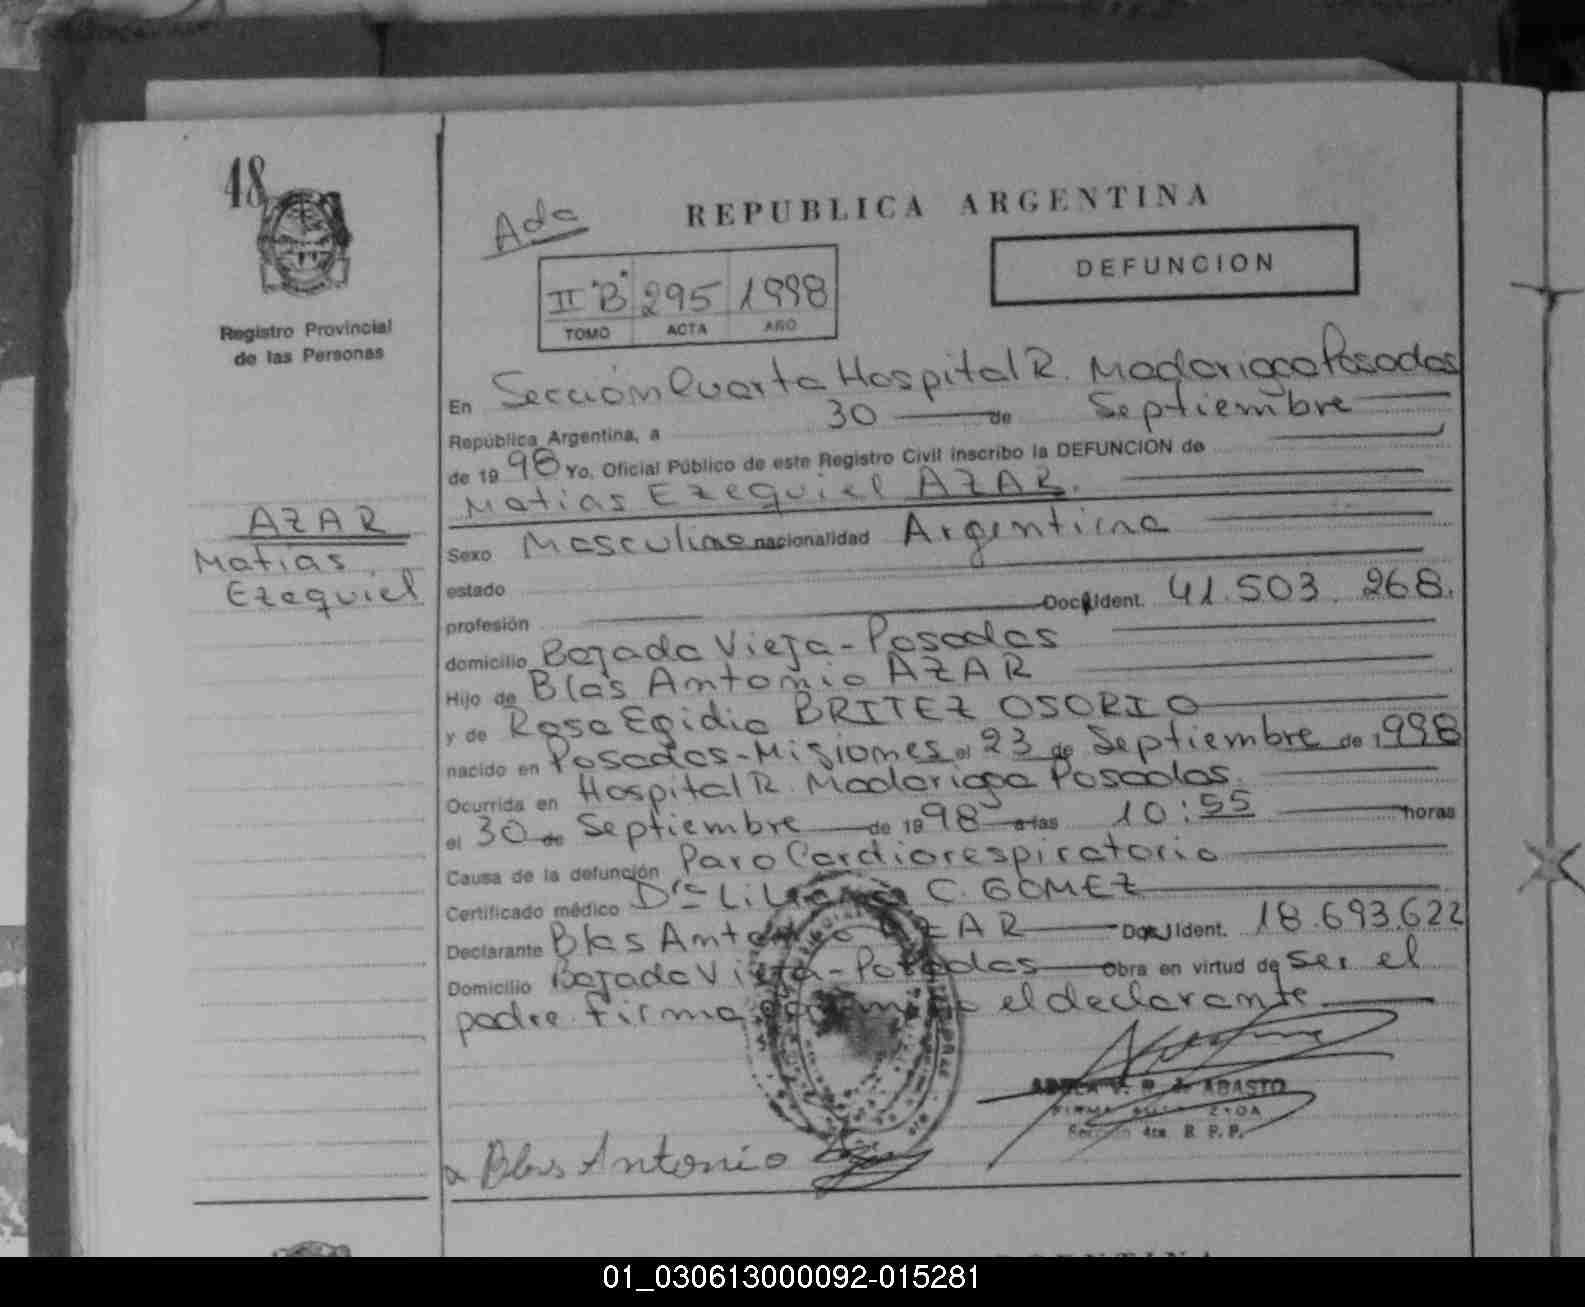 48
Registro Provincial
de las Personas
AZAR
Matias
Ezequiel
Ada
REPUBLICA ARGENTINA
II "B" 295 1998
TOMO ACTA AÑO
DEFUNCION
En Sección Cuarta Hospital R. Madariaga Posadas
República Argentina, a 30 de Septiembre
de 1998 Yo, Oficial Público de este Registro Civil inscribo la DEFUNCION de
Matias Ezequiel AZAR.
Sexo Masculino nacionalidad Argentina
estado
profesión Doc. Ident. 41.503.268.
domicilio Bajada Vieja - Posadas
Hijo de Blas Antonio AZAR
y de Rosa Egidia BRITEZ OSORIO
nacido en Posadas - Misiones el 23 de Septiembre de 1998
Ocurrida en Hospital R. Madariaga Posadas.
el 30 de Septiembre de 1998 a las 10:55 horas
Causa de la defunción Paro Cardiorespiratorio
Certificado médico Dra Liliana C. GOMEZ
Declarante Blas Antonio AZAR Doc. Ident. 18.693.622
Domicilio Bajada Vieja - Posadas Obra en virtud de ser el
padre firma el declarante
V. R. de ABASTO
FIRMA
Sección 4ta R. P. P.
Blas Antonio
01_030613000092-015281